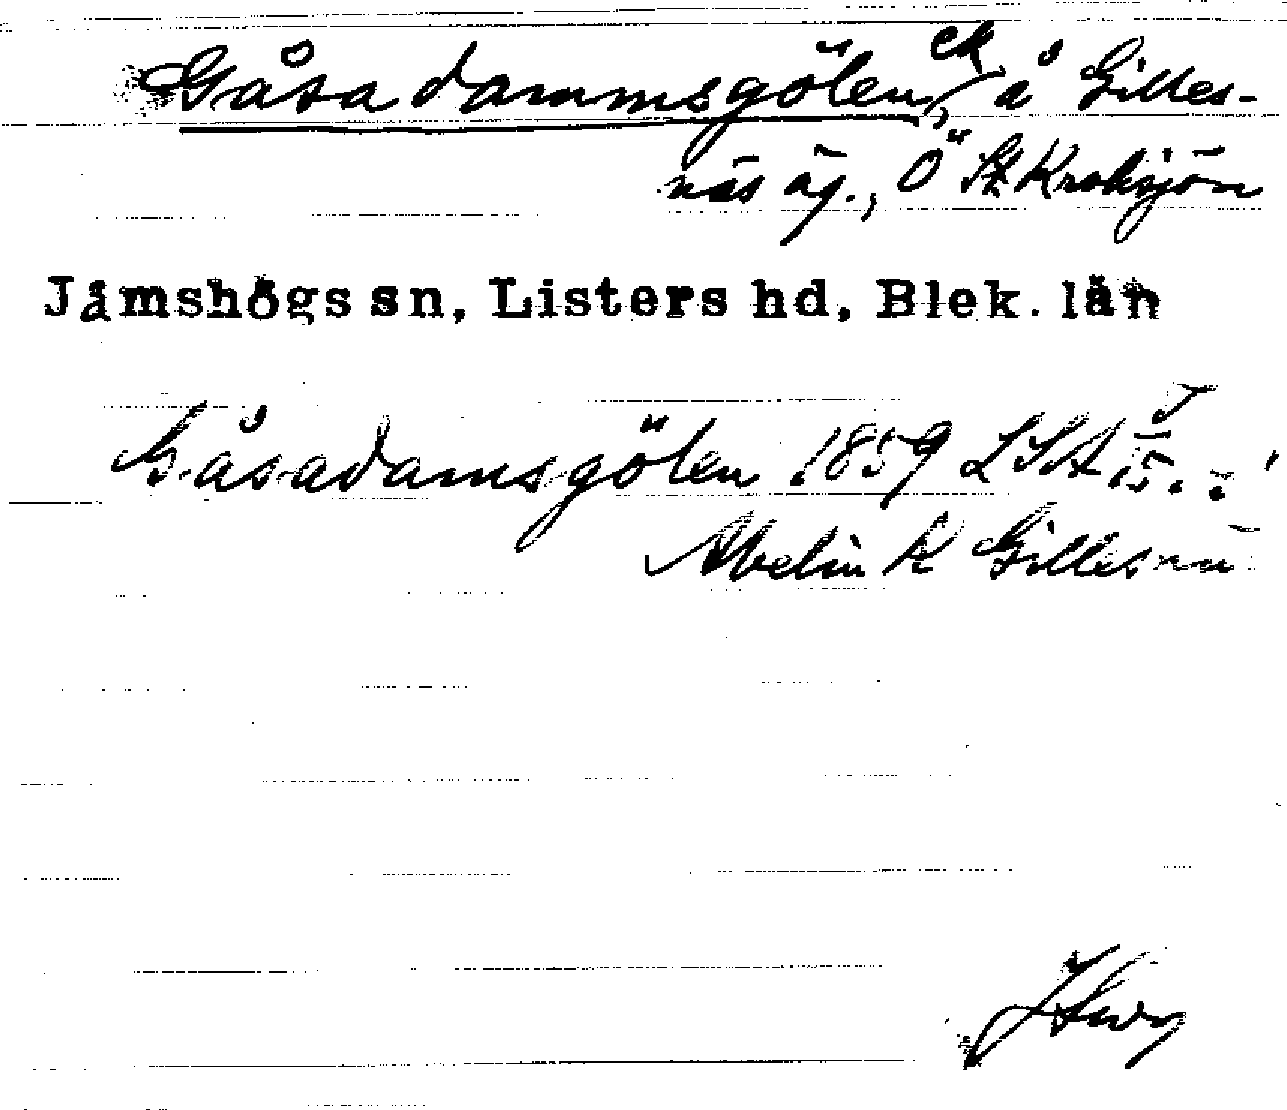 Gåsadammsgölen, ek å Gilles-
näs äg., Ö St Kroksjön
Jämshögs sn, Listers hd, Blek. län
Gåsadamsgölen 1859 LSA
Abelin K Gillesnä